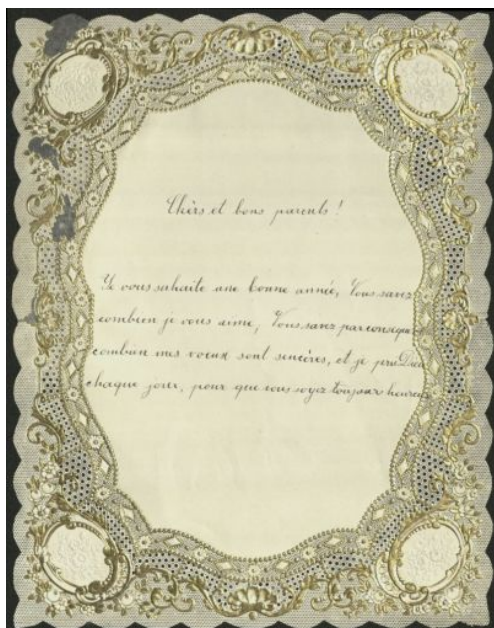 Chèrs et bons parents!
Je vous sahaite une bonne année, Vous savez
combien je vous aime, Vous savez par conseque
combien mes voeux sont sencères, et je prie Dieu
chaque jour, pour que vous soyez toujours heureux